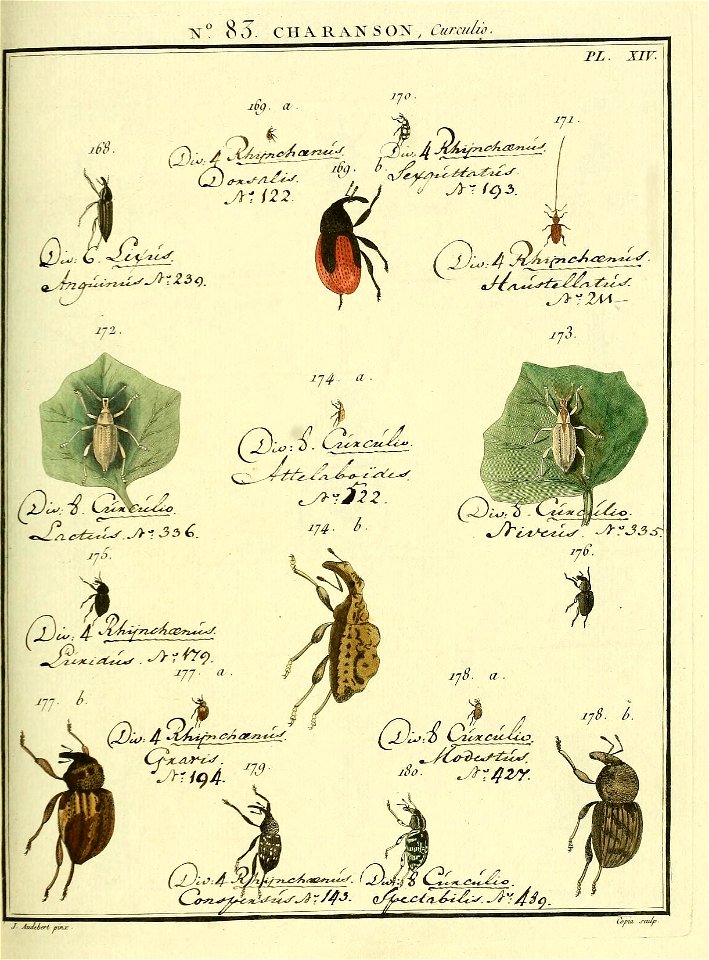 Nº 83. CHARANSON, Curculio.
PL. XIV.
168.
169. a.
170.
171.
Div: 4 Rhÿnchænus
Dorsalis.
Nº 122.
169. b
Div: 4 Rhÿnchænus
Sexguttatus.
Nº 193.
Div: 6. Lixus.
Anguinus Nº 239.
Div: 4 Rhÿnchænus.
Haustellatus.
Nº 211
172.
173.
174. a.
Div: 8. Curculio.
Attelaboïdes.
Nº 522.
Div: 8. Curculio
Lacteus. Nº 336.
Div: 8. Curculio.
Niveus. Nº 335.
174. b.
175.
176.
Div: 4 Rhÿnchænus.
Luridus. Nº 179.
177. a.
177. b.
178. a.
178. b.
Div: 4 Rhÿnchænus.
Gravis.
Nº 194.
Div: 8 Curculio.
Modestus.
Nº 427.
179.
180.
Div: 4 Rhÿnchænus.
Conspersus Nº 143.
Div: 8 Curculio.
Spectabilis. Nº 439.
J. Audebert pinx.
Copia sculp.